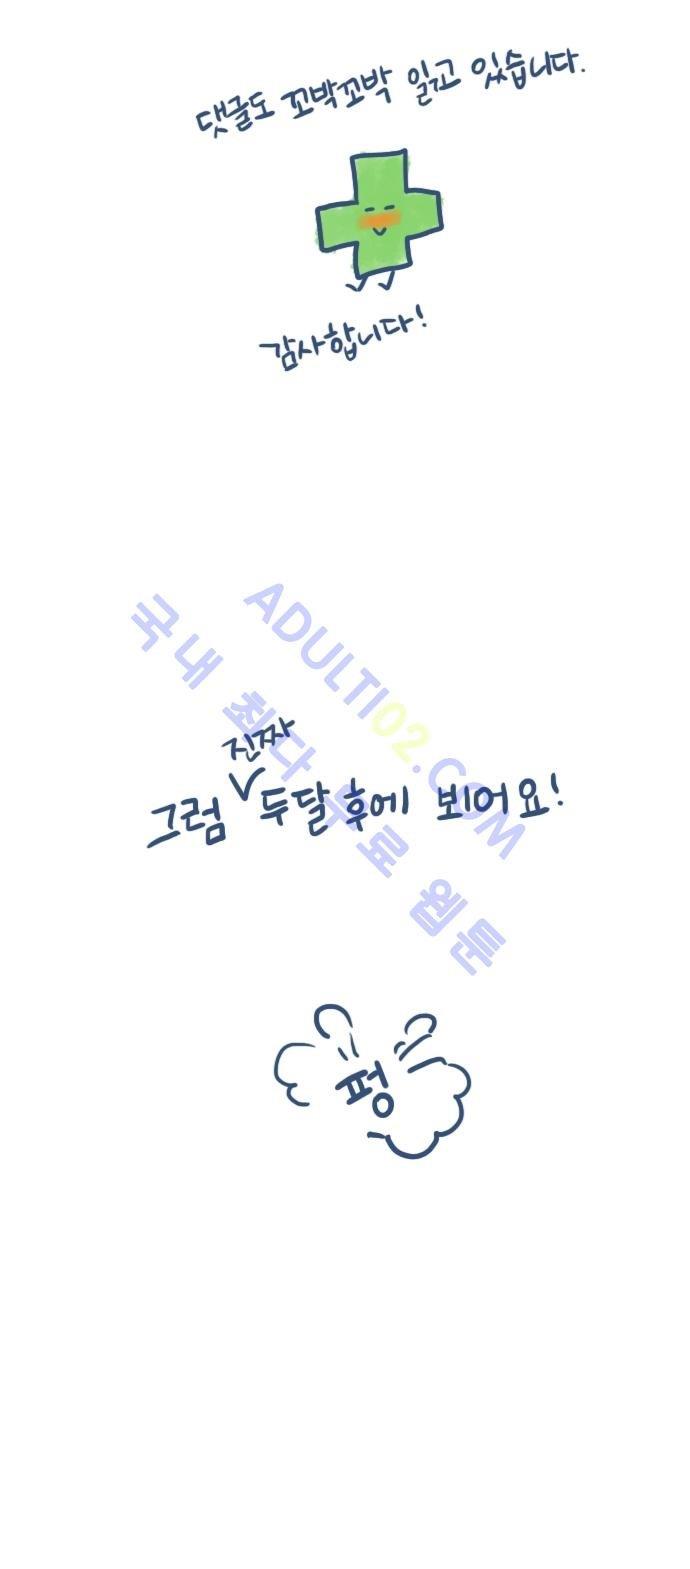 댓글도 꼬박꼬박 읽고 있습니다.
감사합니다!
ADULTI02.COM
국내 최다 무료 웹툰
진짜
그럼 두달 후에 뵈어요!
펑